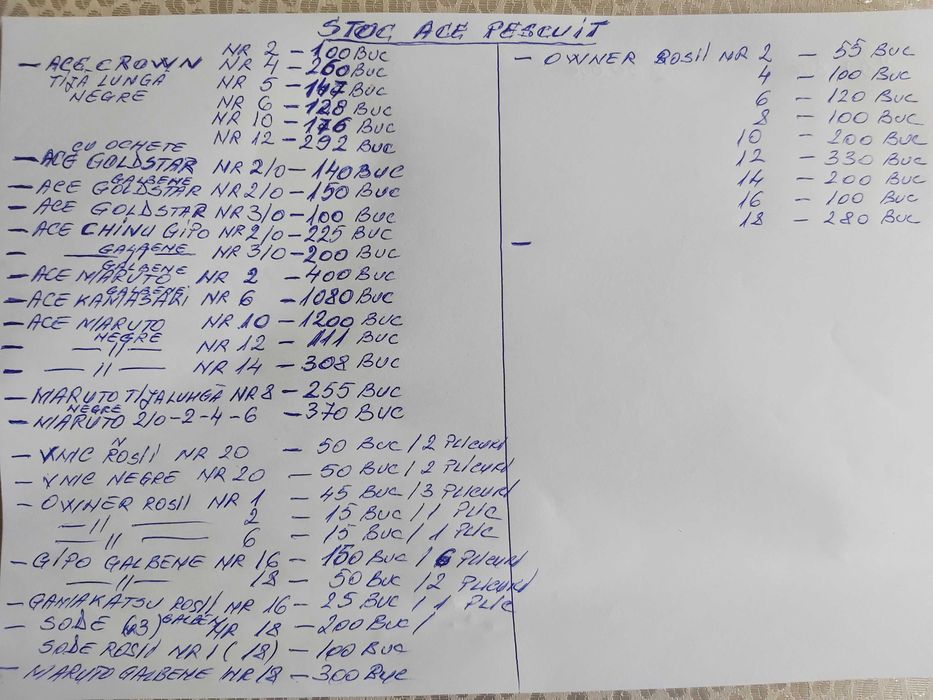 STOC ACE PESCUIT
- ACE CROWN NR 2 - 100 BUC
TIJA LUNGĂ NR 4 - 260 BUC
NEGRE NR 5 - 147 BUC
NR 6 - 128 BUC
NR 10 - 176 BUC
NR 12 - 292 BUC
CU OCHETE
- ACE GOLDSTAR NR 2/0 - 140 BUC
GALBENE
- ACE GOLDSTAR NR 2/0 - 150 BUC
- ACE GOLDSTAR NR 3/0 - 100 BUC
- ACE CHINU GIPO NR 2/0 - 225 BUC
- GALBENE NR 3/0 - 200 BUC
GALBENE
- ACE MARUTO NR 2 - 400 BUC
GALBENE
- ACE KAMASARI NR 6 - 1080 BUC
- ACE MARUTO NR 10 - 1200 BUC
NEGRE
- —//— NR 12 - 111 BUC
- —//— NR 14 - 308 BUC
- MARUTO TIJA LUNGĂ NR 8 - 255 BUC
NEGRE
- MARUTO 2/0-2-4-6 - 370 BUC
- VMC ROSII NR 20 - 50 BUC / 2 PLICURI
- VMC NEGRE NR 20 - 50 BUC / 2 PLICURI
- OWNER ROSII NR 1 - 45 BUC / 3 PLICURI
—//— 2 - 15 BUC / 1 PLIC
—//— 6 - 15 BUC / 1 PLIC
- GIPO GALBENE NR 16 - 150 BUC / 6 PLICURI
—//— 18 - 50 BUC / 2 PLICURI
- GAMAKATSU ROSII NR 16 - 25 BUC / 1 PLIC
- SODE (63) GALBEN NR 18 - 200 BUC /
SODE ROSII NR 1 (18) - 100 BUC
- MARUTO GALBENE NR 18 - 300 BUC
- OWNER ROSII NR 2 - 55 BUC
4 - 100 BUC
6 - 120 BUC
8 - 100 BUC
10 - 200 BUC
12 - 330 BUC
14 - 200 BUC
16 - 100 BUC
18 - 280 BUC
-